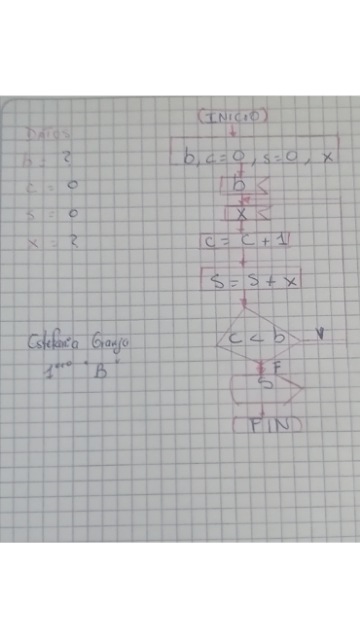 Datos
b = ?
c = 0
s = 0
x = ?
Estefania Granja
1ero "B"
INICIO
b, c=0, s=0, x
b
x
c = c + 1
s = s + x
c < b
V
F
S
FIN